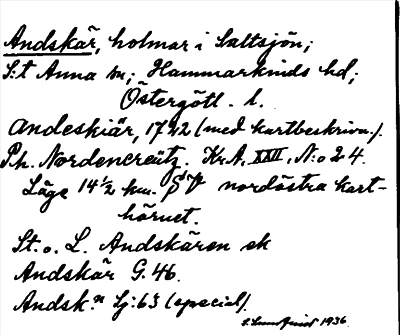 Andskär, holmar i Saltsjön;
S:t Anna sn; Hammarkinds hd;
Östergötl. l.
Andeskiär, 1742 (med kartbeskrivn.).
Ph. Nordencreutz. Kr.A. XXII, N:o 24.
Läge 14 1/2 km. nordöstra kart-
hörnet.
St. o. L. Andskären ek
Andskär G. 46.
Andsk:n Sj: 63 (special).
1936